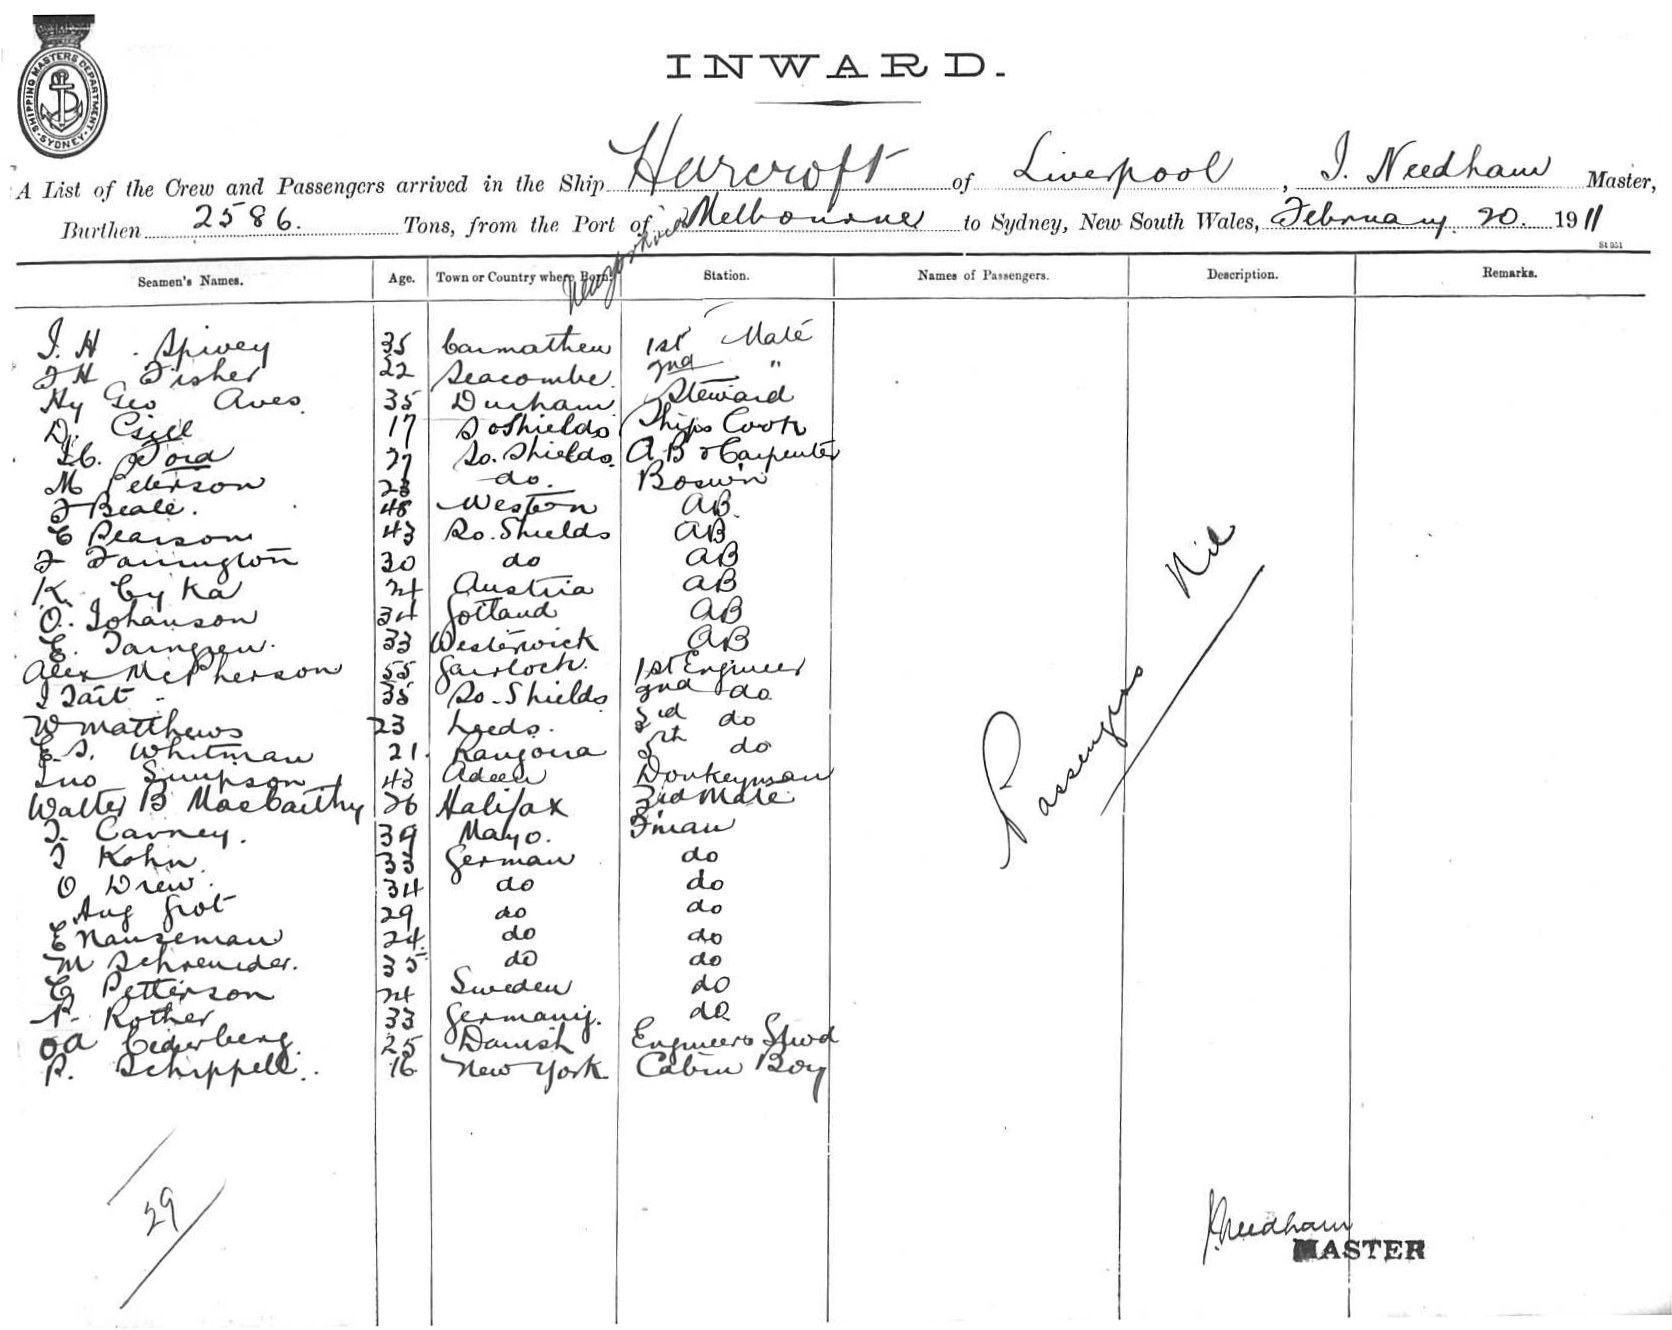 SHIPPING MASTERS DEPARTMENT SYDNEY
INWARD.
A List of the Crew and Passengers arrived in the Ship Harcroft of Liverpool, J. Needham Master,
Burthen 2586. Tons, from the Port of Melbourne to Sydney, New South Wales, February 20. 1911
St 351
Seamen's Names. Age. Town or Country where Born. Station. Names of Passengers. Description. Remarks.
J. H. Spivey 35 Carmathen 1st Mate
F H Fisher 22 Seacombe. 2nd "
Hy Geo Aves. 35 Durham Steward
D. 17 So Shields Ships Cook
Ford 27 So. Shields. A.B & Carpenter
M Peterson 23 do. Boswin
F Beale. 48 Weston AB.
C Pearson 43 So. Shields AB
F Farrington 30 do AB
K. Cyka 24 Austria AB
O. Johanson 34 Gotland AB
E. Tarngren. 33 Westerwick AB
Alex McPherson 55 Gairloch. 1st Engineer
J Tait 35 So. Shields 2nd do.
W Matthews 23 Leeds. 3rd do
E S. Whitman 21. do
Jno Simpson 43 Donkeyman
Walter B MacCarthy 26 Halifax 3rd Mate
T. Carney. 39 Mayo. F'man
J Kohn 33 German do
O Drew. 34 do do
Aug Grot 29 do do
E Nauseman 24. do do
M Schreuider. 35 do do
C Petterson 24 Sweden do
P. Rother 33 Germany. do
OA Cederberg. 25 Danish Engineers Stwd
P. Schippell. 16 New York Cabin Boy
Passengers Nil
29
J Needham
MASTER